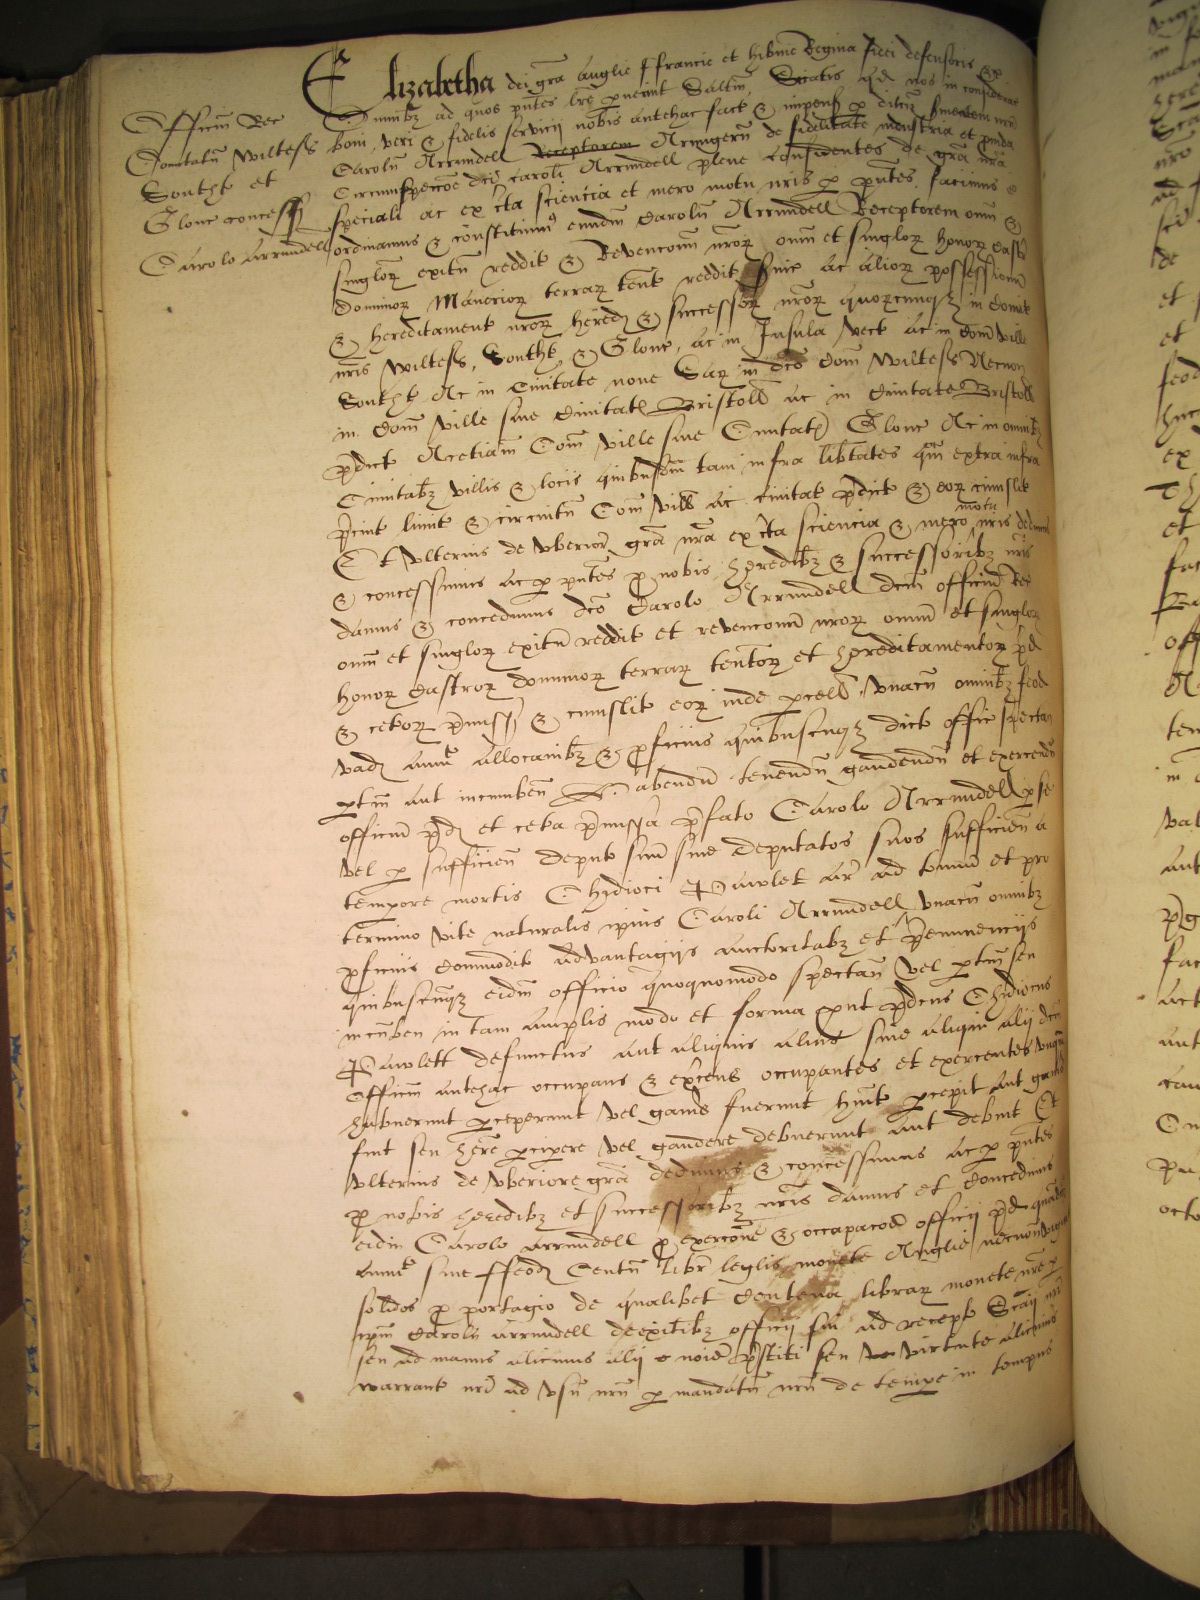 Officiu Rec
Comitatu Wiltess
Southt et
Glouc concess
Carolo Arrundell
Elizabetha dei gra Anglie ffrancie et hibnie Regina fidei defensoris &c
Omnibz ad quos pntes lre pvenint Saltm Sciatis qd nos in consideracoe
boni, veri & fidelis servicii nobis antehac fact & impens p dilcm servientem nrm
Carolu Arrundell Receptorem Armigeru de fidelitate industria et provida
Circumspeccoe dci caroli Arrundell plene confidentes de gra nra
speciali ac ex cta sciencia et mero motu nris p pntes facimus
ordinamus & constituimus eundm Carolu Arrundell Receptorem omn &
singlor exitu reddit & Revencionu nror omn et singlor honor castr
dominor Manerior terrar tent reddit suic ac alior possessionu
& hereditament nror hered & successor nror quorcunqz in Comit
nris Wiltess, Southt, & Glouc, ac in Insula Vect ac in Com Ville
Southt Ac in Civitate nove Sar in dco Com Wiltess Necnon
in Com Ville sive Civitat Bristoll ac in Civitate Bristoll
pdict Acetiam Com Ville sive Civitat Glouc Ac in omnibz
Civitabz Villis & locis quibusdm tam infra libtates qm extra infra
pcinct limit & circuitu Com Vill ac civitat pdict & eor cuiuslibt
Et Ulterius de Uberior gra nra ex cta sciencia & mero motu nris dedimus
& concessimus ac p pntes p nobis heredibz & successoribz nris
damus & concedimus dco Carolo Arrundell dcm officiu Rec
omn et singlor exitu reddit et revencionu nror omn et singlor
honor Castror dominior terrar tentor et hereditamentor pd
& cetor pmiss & cuiuslibt eor inde pcell, Unacu omnibz feod
vad annu allocacibz & pficuis quibuscuqz dict offic spectan
ptin aut incumben Habendu tenendu gaudendu et exercendu
officiu pd et ceta pmissa pfato Carolo Arrundell p se
vel p sufficien deput suu sive deputatos suos sufficien a
tempore mortis Chidioci Pawlet ar ad tminu et pro
termino vite naturalis ipius Caroli Arrundell Unacu omnibz
pficuis Commodit advantagiis auctoritabz et preeminenciis
quibuscuqz eidm officio quoquomodo spectan vel ptin seu
incuben in tam amplis modo et forma pout pdcus Chidiocus
Pawlett defunctus aut aliquis alius sive aliqui alii dcm
Officiu antehac occupans & excens occupantes et exercentes unqm
habuerunt pceperunt vel gavis fuerunt huit pcepit aut gavis
fuit seu here pcipere vel gaudere debuerunt aut debuit Et
ulterius de uberiore gra dedimus & concessimus ac p pntes
p nobis heredibz et successoribz nris damus et Concedimus
eidm Carolo Arrundell p exercoe & occupacoe officii pd quandm
annu sive ffeod Centu libr leglis monete Anglie necnon viginti
solidos p portagio de qualibet Centena librar monete nre p
ipm Carolu Arrundell de exitibz officii sui ad recept Sccii nri
seu ad manus alicuius alii p noie pstiti seu virtute alicuius
warrant nri ad usu nru p mandatu nru de tempe in tempus